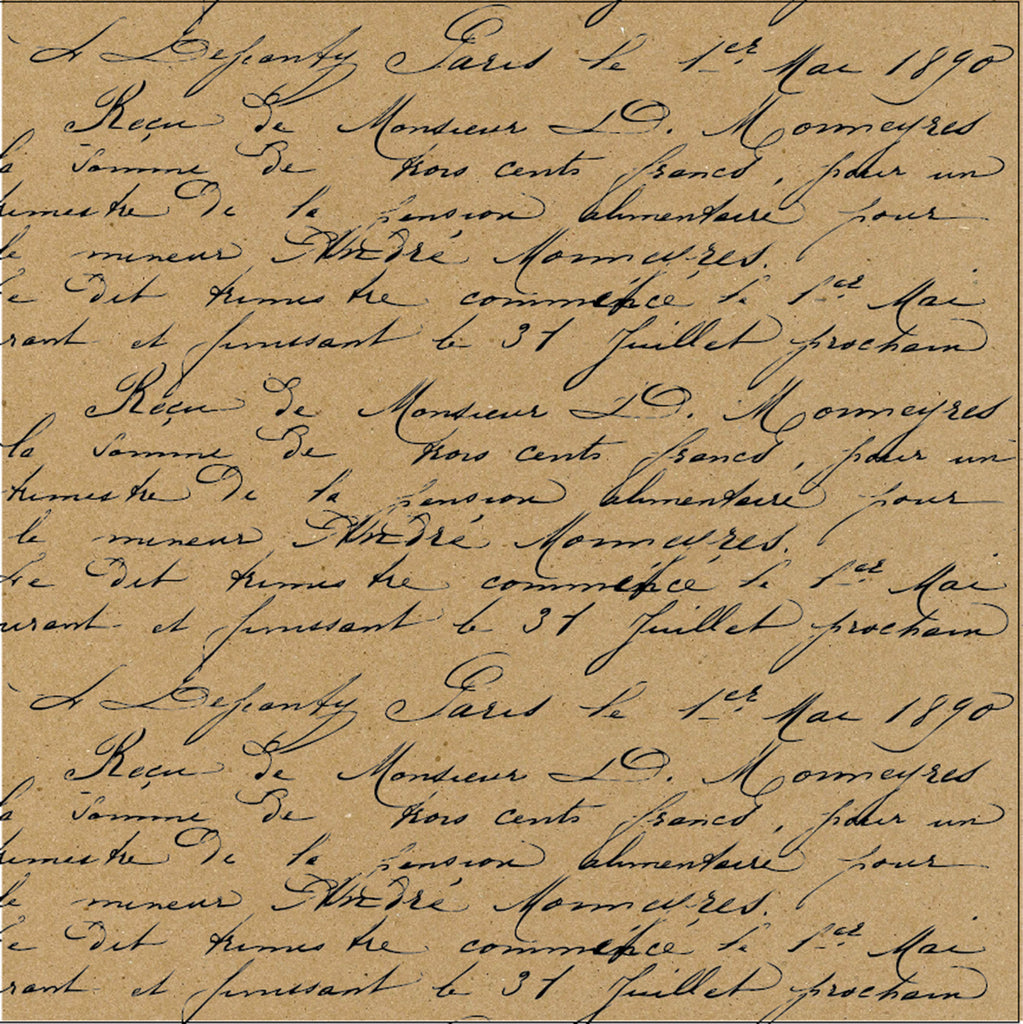 Paris le 1er Mai 1890
Reçu de Monsieur D. Monneyres
la Somme de trois cents francs, pour un
trimestre De la pension alimentaire pour
le mineur André Monneyres.
Le dit trimestre commencé le 1er Mai
rant et finissant le 31 Juillet prochain
Reçu de Monsieur D. Monneyres
la Somme de trois cents francs, pour un
trimestre De la pension alimentaire pour
le mineur André Monneyres.
Le dit trimestre commencé le 1er Mai
urant et finissant le 31 Juillet prochain
Paris le 1er Mai 1890
Reçu de Monsieur D. Monneyres
la Somme de trois cents francs, pour un
trimestre De la pension alimentaire pour
le mineur André Monneyres.
Le dit trimestre commencé le 1er Mai
rant et finissant le 31 Juillet prochain